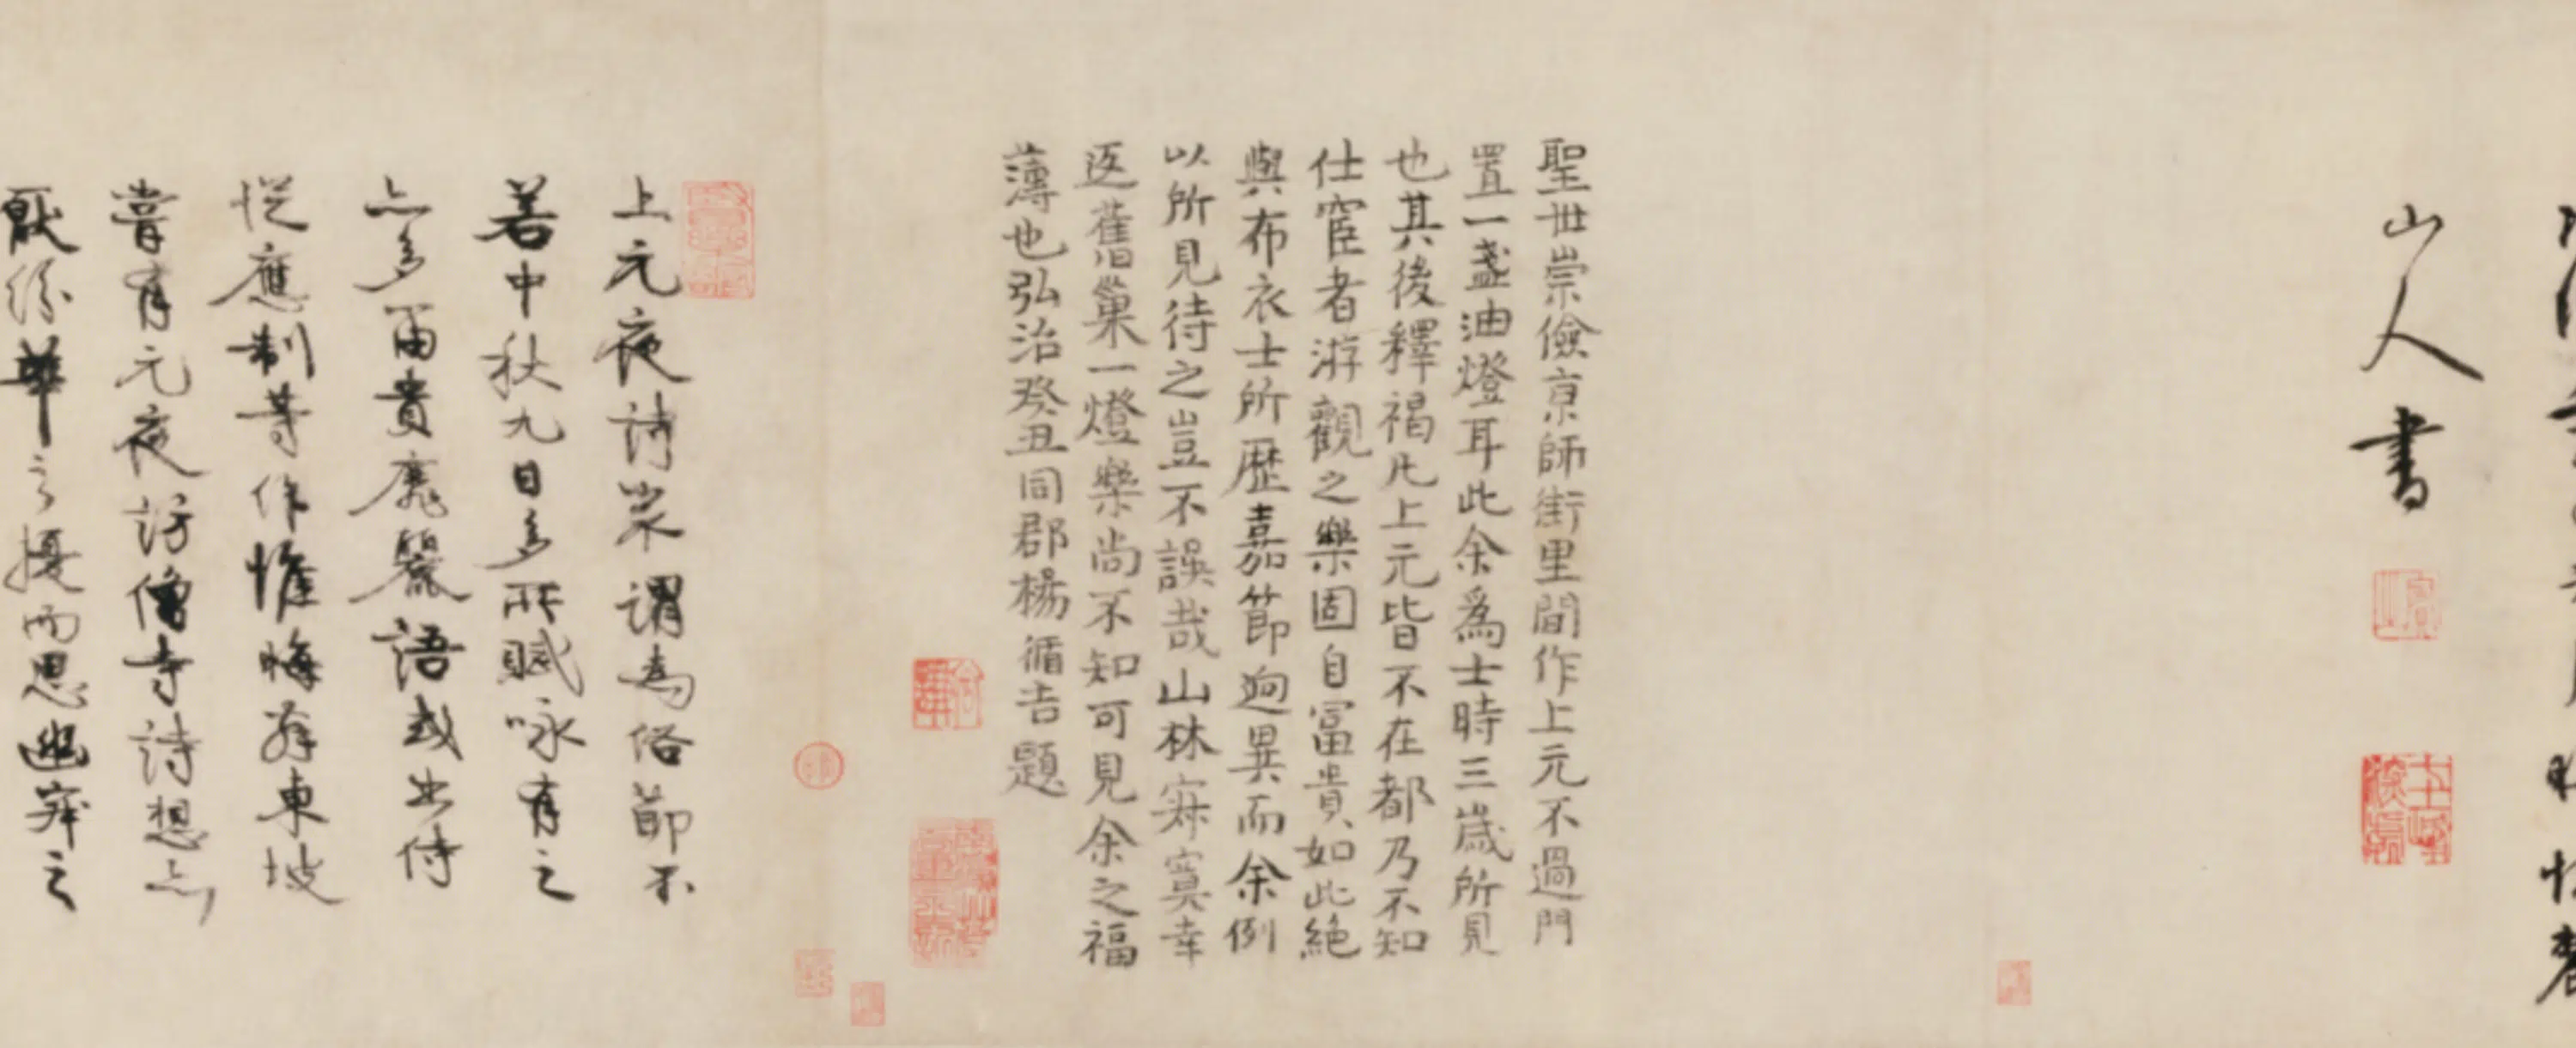 山人書
聖世崇儉京師街里間作上元不過門
置一盞油燈耳此余爲士時三歲所見
也其後釋褐凡上元皆不在都乃不知
仕宦者游觀之樂固自富貴如此絕
與布衣士所歷嘉節迥異而余例
以所見待之豈不誤哉山林寂寞幸
返舊巢一燈樂尚不知可見余之福
薄也弘治癸丑同郡楊循吉題
上元夜詩眾謂為俗節不
若中秋九日多所賦咏有之
亦多富貴麗語或出侍
從應制等作惟晦翁東坡
嘗有元夜訪僧寺詩想亦
厭紛華之擾而思幽寂之